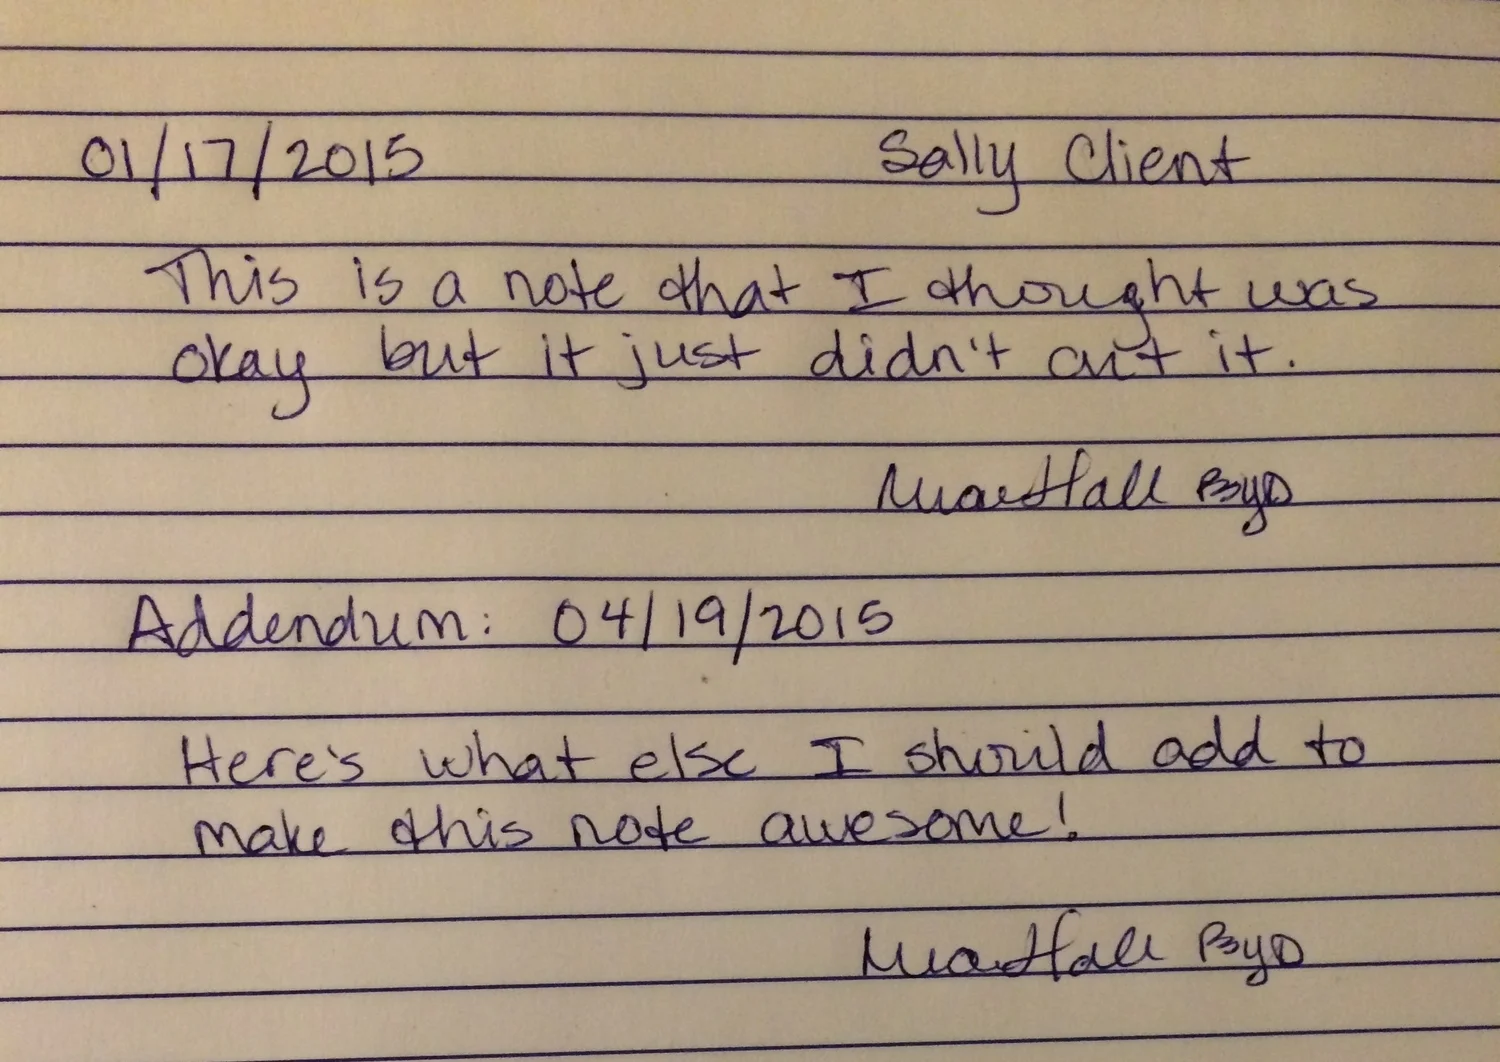 01/17/2015 Sally Client
This is a note that I thought was
okay but it just didn't cut it.
Hall PsyD
Addendum: 04/19/2015
Here's what else I should add to
make this note awesome!
Hall PsyD